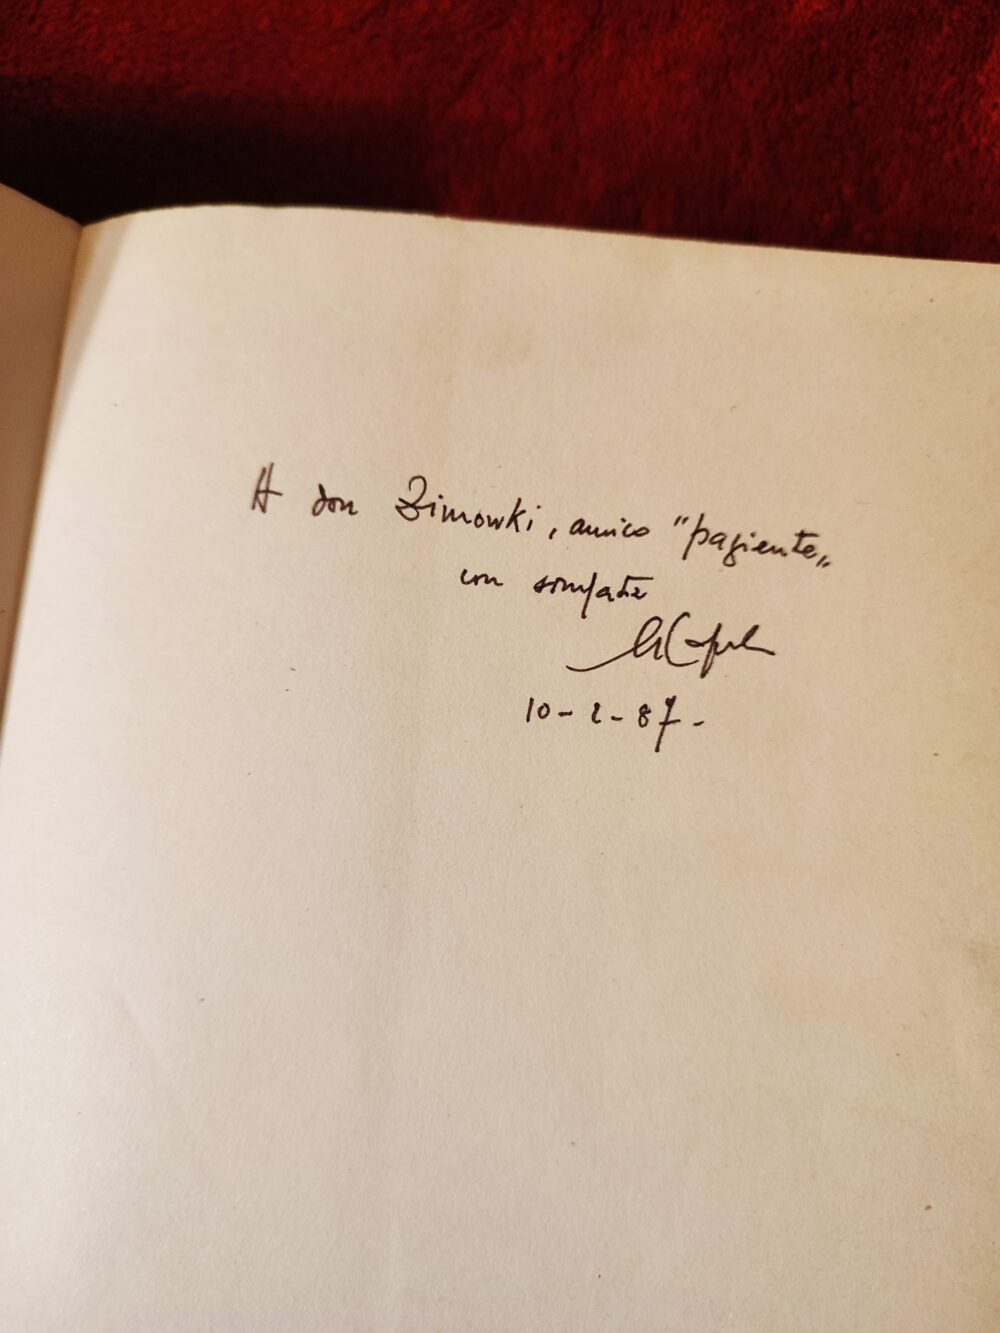 A don Zimowki, amico "paziente„
con simpatia
10-2-87-